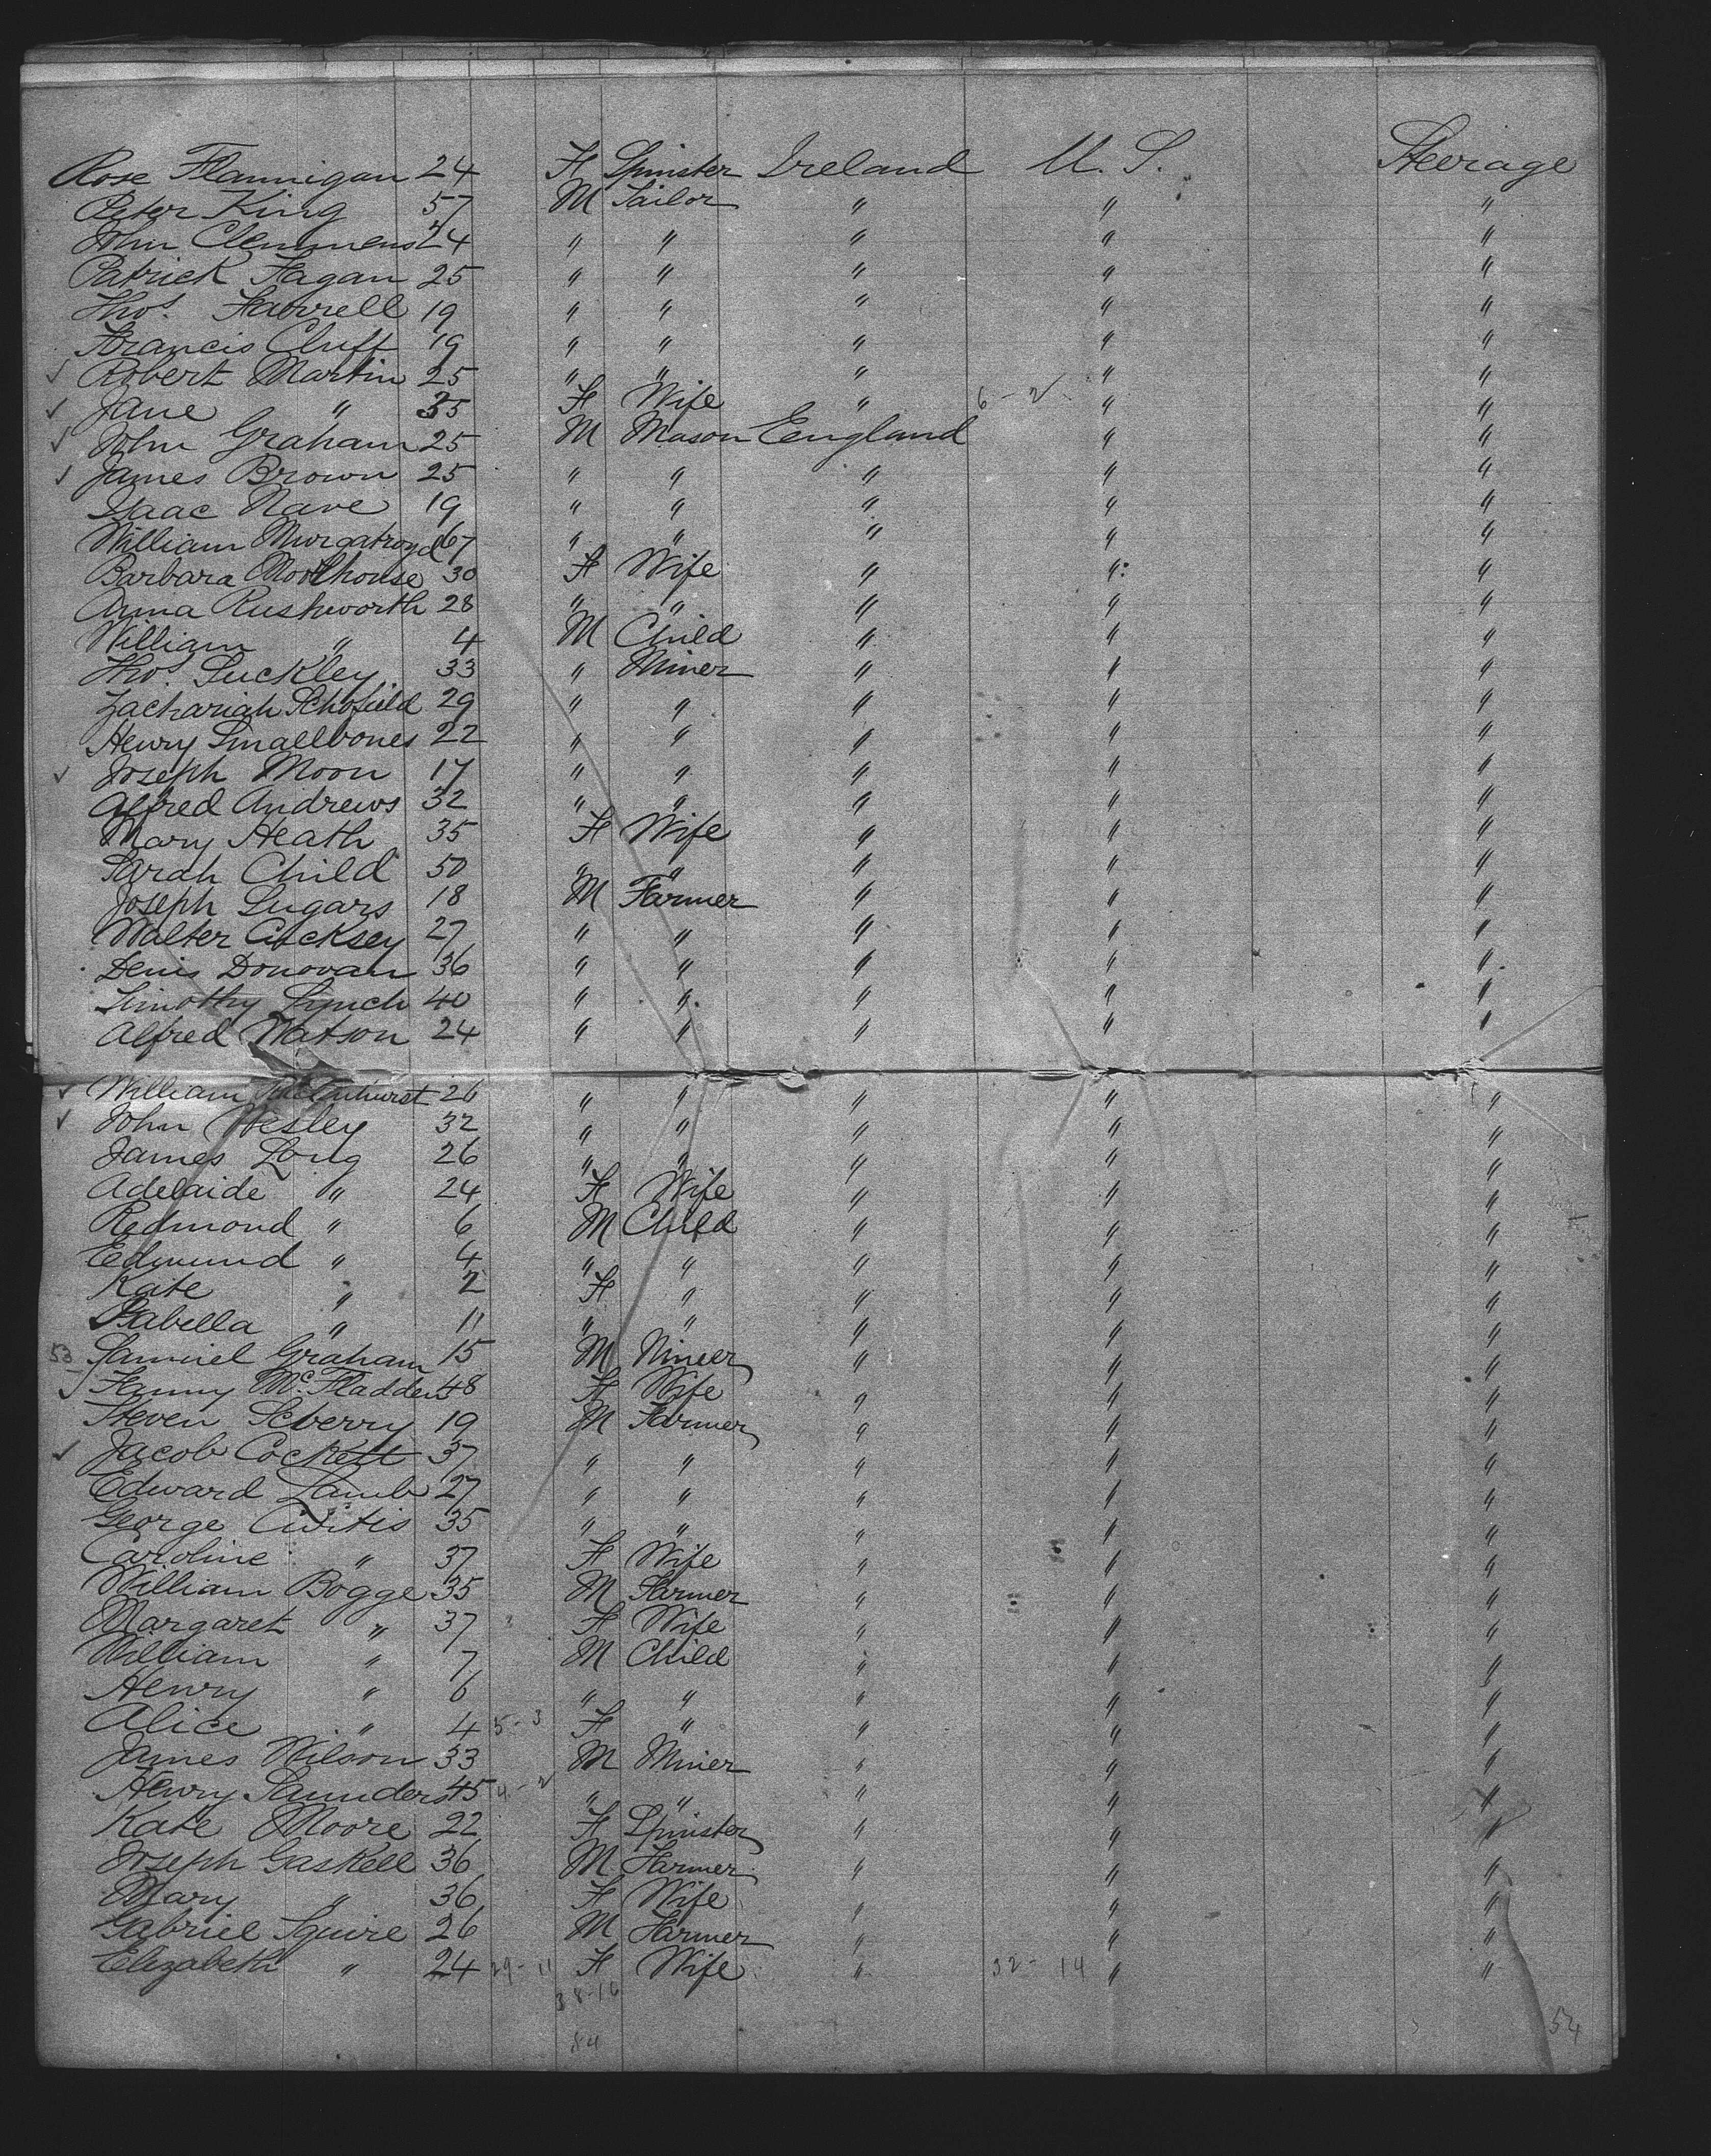 Rose Flannigan 24 F Spinster Ireland U. S. Steerage
Peter King 57 M Tailor " " "
John Clemmens 24 " " " " "
Patrick Fagan 25 " " " " "
Thos. Farrell 19 " " " " "
Francis Cluff 19 " " " " "
✓ Robert Martin 25 " " " " "
✓ Jane " 35 F Wife " 6 - 2 " "
✓ John Graham 25 M Mason England " "
✓ James Brown 25 " " " " "
Isaac Nave 19 " " " " "
William Murgatroyd 67 " " " " "
Barbara Moorhouse 30 F Wife " " "
Anna Rushworth 28 " " " " "
William " 4 M Child " " "
Thos Suckley 33 " Miner " " "
Zachariah Schofield 29 " " " " "
Henry Smallbones 22 " " " " "
✓ Joseph Moon 17 " " " " "
Alfred Andrews 32 " " " " "
Mary Heath 35 F Wife " " "
Sarah Child 50 " " " " "
Joseph Sugars 18 M Farmer " " "
Walter Cocksey 27 " " " " "
Denis Donovan 36 " " " " "
Timothy Lynch 40 " " " " "
Alfred Watson 24 " " " " "
✓ William 26 " " " " "
✓ John Wesley 32 " " " " "
James Long 26 " " " " "
Adelaide " 24 F Wife " " "
Redmond " 6 M Child " " "
Edmund " 4 " " " " "
Kate " 2 F " " " "
Isabella " 11 " " " " "
53 Samuel Graham 15 M Mineer " " "
✓ Fanny McFladden 48 F Wife " " "
Steven Seberry 19 M Farmer " " "
✓ Jacob Cockett 37 " " " " "
Edward Lamb 27 " " " " "
George Curtis 35 " " " " "
Caroline " 37 F Wife " " "
William Bogge 35 M Farmer " " "
Margaret " 37 F Wife " " "
William " 7 M Child " " "
Henry " 6 " " " " "
Alice " 4 5 - 3 F " " " "
James Wilson 33 M Miner " " "
Henry Saunders 45 4 - 2 " " " " "
Kate Moore 22 F Spinster " " "
Joseph Gaskell 36 M Farmer " " "
Mary " 36 F Wife " " "
Gabriel Squire 26 M Farmer " " "
Elizabeth " 24 29 - 11 F Wife " 32 - 14 " "
38-16
84
54